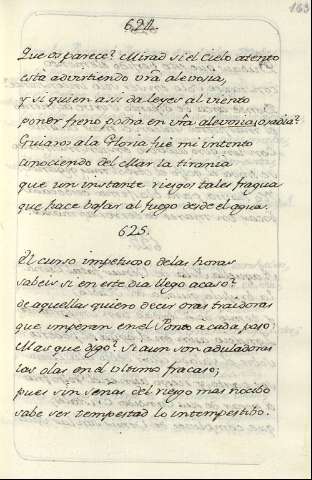 163
624.
Que os parece? Mirad si el Cielo atento
esta advirtiendo vr̃a alevosia,
y si quien assi da leyes al viento
poner freno podra en vr̃a alevonia, osadia?
Guiaros a la Gloria fue mi intento
conociendo del Mar la tirania
que un instante riesgos tales fragua
que hace bajar al fuego desde el agua.
625.
El curso impetuoso de las horas
sabeis si en este dia llego acaso?
de aquellas quiero decir oras traidoras
que imperan en el Ponto a cada paso
Mas que digo? Si aun son aduladoras
las olas en el ultimo fracaso;
pues sin señas del riesgo mas nocibo
sabe ser tempestad lo intempestibo.